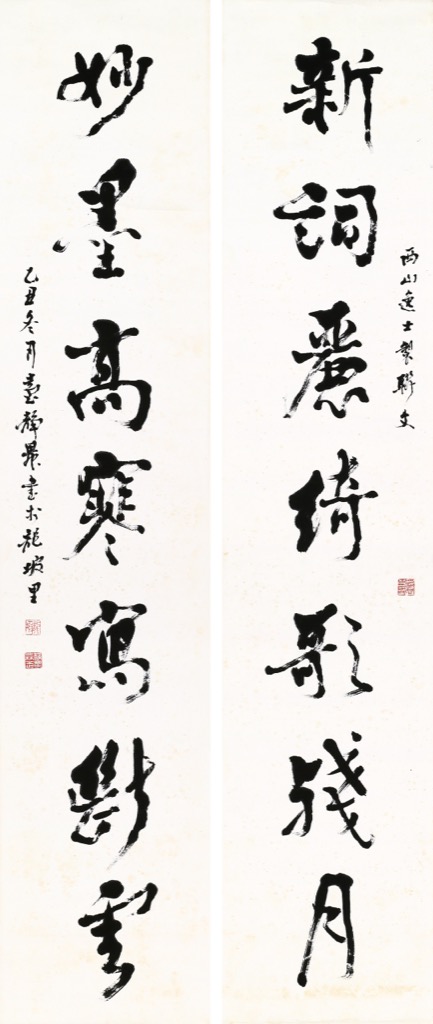 新詞麗綺歌殘月
西山逸士製聯文
妙墨高寒寫斷雲
乙丑冬月臺靜農書於龍坡里